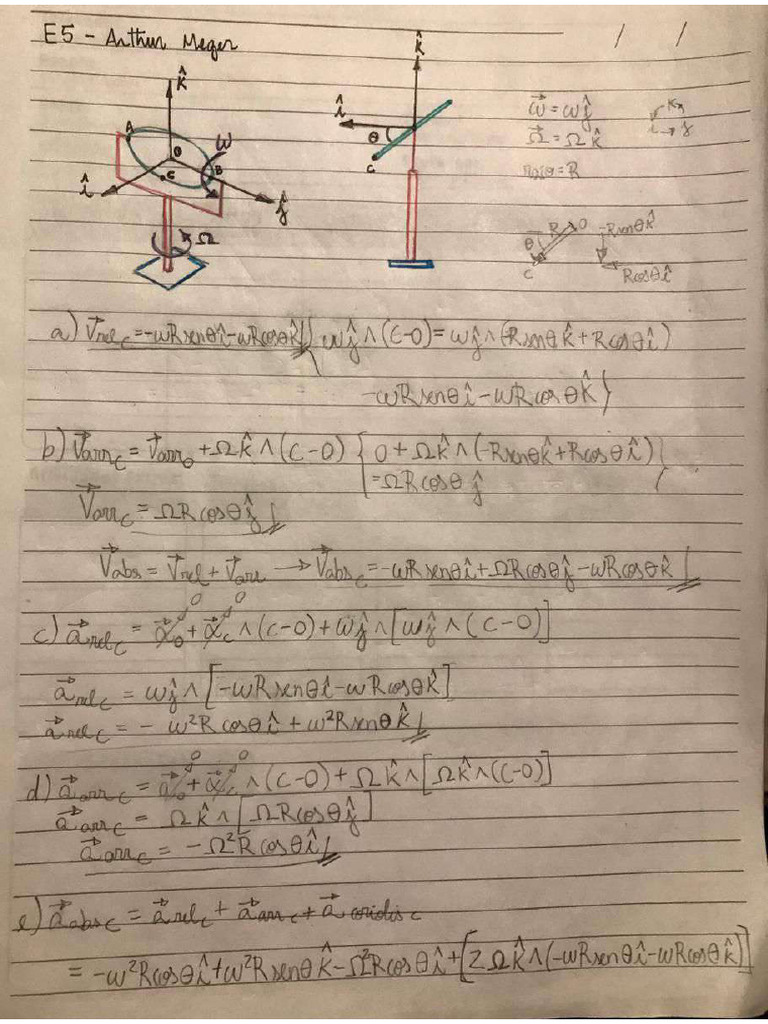 E5 - Arthur Meger
/ /
k̂
A
O
ω
C
B
î
ĵ
Ω
k̂
î
θ
C
ω⃗ = ωĵ
Ω⃗ = Ω k̂
raio = R
k
i
j
θ
R
O
C
-Rsenθk̂
Rcosθî
a) V⃗rel_C = -ωRsenθî-ωRcosθk̂ ωĵ∧(C-O) = ωĵ∧(-Rsenθk̂+Rcosθî)
-ωRsenθî-ωRcosθk̂
b) V⃗arr_C = V⃗arr_O + Ωk̂∧(C-O) { 0+Ωk̂∧(-Rsenθk̂+Rcosθî)
=ΩRcosθ ĵ
V⃗arr_C = ΩRcosθĵ
V⃗abs = V⃗rel + V⃗arr → V⃗abs_C = -ωRsenθî+ΩRcosθĵ-ωRcosθk̂
c) a⃗rel_C = a⃗_O⁰ + α⃗_C⁰ ∧(C-O)+ωĵ∧[ωĵ∧(C-O)]
a⃗rel_C = ωĵ∧[-ωRsenθî-ωRcosθk̂]
a⃗rel_C = - ω²Rcosθî + ω²Rsenθk̂
d) a⃗arr_C = a⃗_O⁰ + α⃗⁰ ∧(C-O)+Ωk̂∧[Ωk̂∧(C-O)]
a⃗arr_C = Ωk̂∧[ΩRcosθĵ]
a⃗arr_C = -Ω²Rcosθî
e) a⃗abs_C = a⃗rel_C + a⃗arr_C + a⃗coriolis_C
= -ω²Rcosθî+ω²Rsenθk̂-Ω²Rcosθî+[2Ωk̂∧(-ωRsenθî-ωRcosθk̂)]